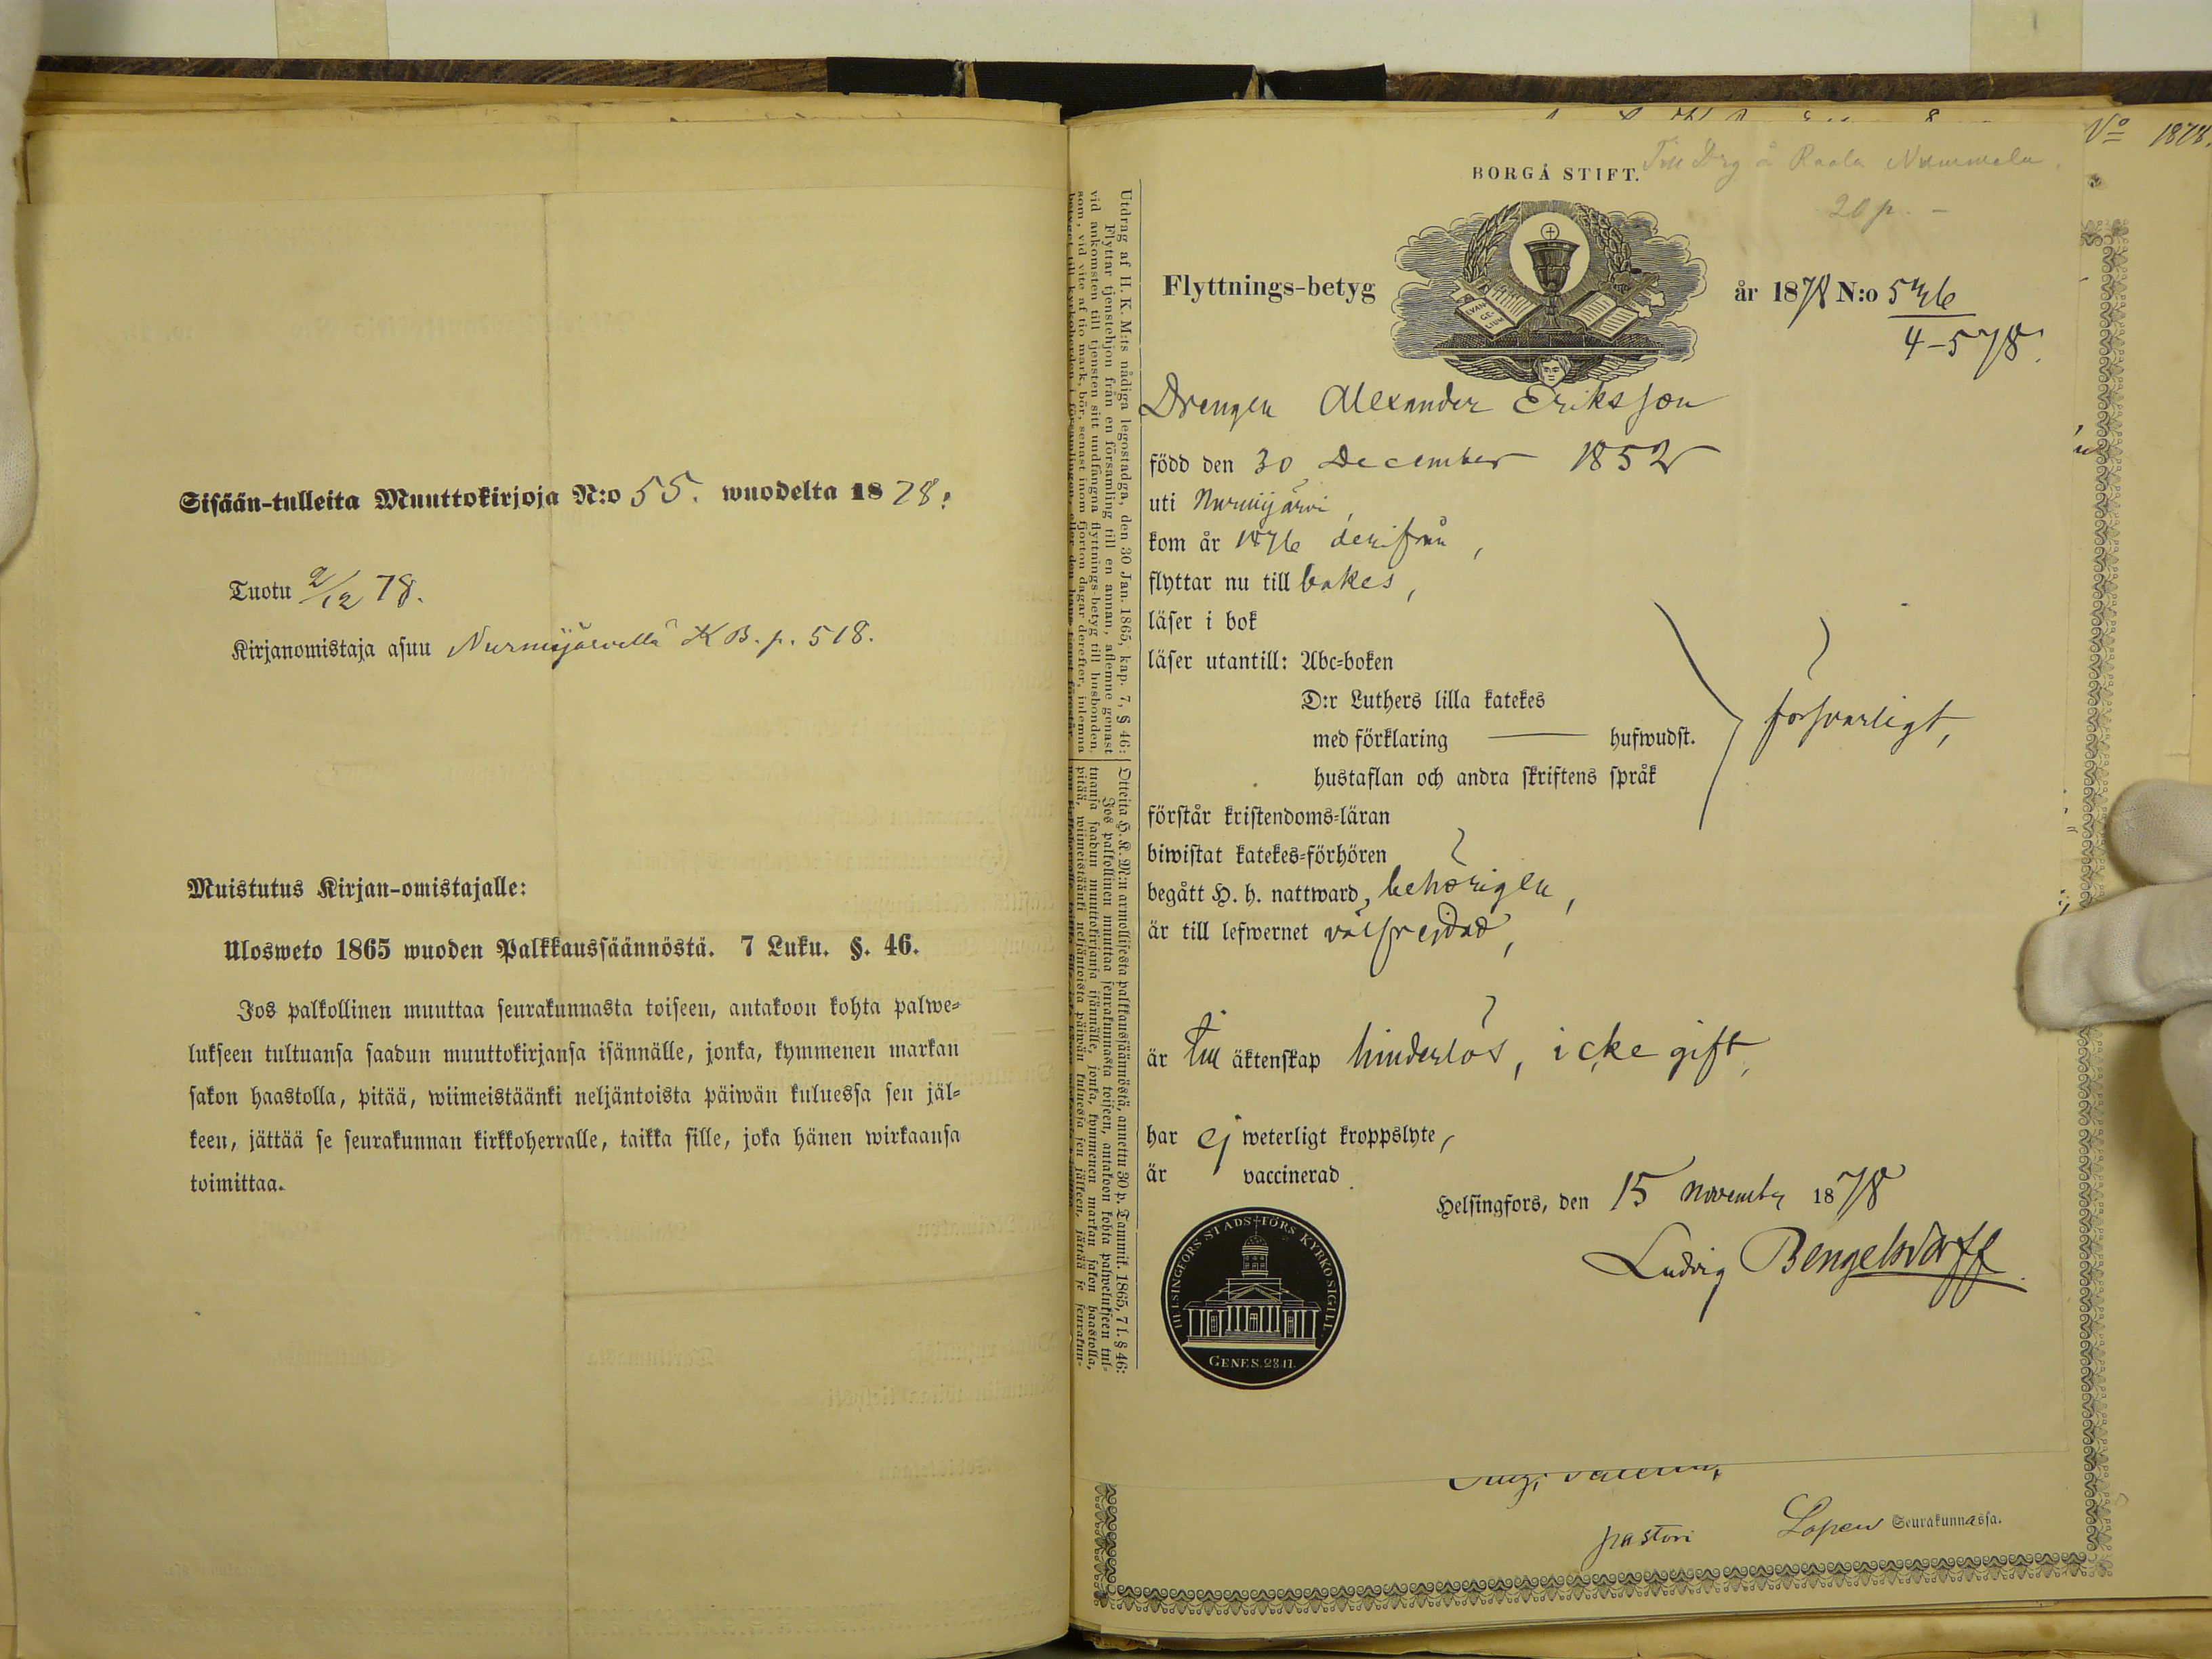 Sisään-tulleita Muuttokirjoja N:o 55. wuodelta 1878.
Tuotu 2/12 78.
Kirjanomistaja asuu Nurmijärvellä K B. p. 518.
Muistutus Kirjan-omistajalle:
Ulosweto 1865 wuoden Palkkaussäännöstä. 7 Luku. §. 46.
Jos palkollinen muuttaa seurakunnasta toiseen, antakoon kohta palwe-
lukseen tultuansa saadun muuttokirjansa isännälle, jonka, kymmenen markan
sakon haastolla, pitää, wiimeistäänki neljäntoista päiwän kuluessa sen jäl-
keen, jättää se seurakunnan kirkkoherralle, taikka sille, joka hänen wirkaansa
toimittaa.
Utdrag af H. K. M:ts nådiga legostadga, den 30 Jan. 1865, kap. 7, § 46:
Flyttar tjenstehjon från en församling till en annan, aflemne genast
vid ankomsten till tjensten sitt undfångna flyttnings-betyg till husbonden,
som, vid vite af tio mark, bör, senast inom fjorton dagar derefter, inlemna
Otteita H. K. M:n armollisesta palkkaussäännöstä, annettu 30 p. Tammik. 1865, 7 l. § 46:
Jos palkollinen muuttaa seurakunnasta toiseen, antakoon kohta palwelukseen tul-
tuansa saadun muuttokirjansa isännälle, jonka, kymmenen markan sakon haastolla,
pitää, wiimeistäänki neljäntoista päiwän kuluessa sen jälkeen, jättää se seurakun-
N:o 1878.
BORGÅ STIFT.
Till Drg å Raala Nummela.
20 p. -
Flyttnings-betyg
EVAN
GE-
LIUM
år 1878 N:o 5
4-578.
Drengen Alexander Eriksson
född den 30 December 1852
uti Nurmijärvi,
kom år 1876 derifrån,
flyttar nu till bakes,
läser i bok
läser utantill: Abc-boken
D:r Luthers lilla katekes
med förklaring — hufwudst.
hustaflan och andra skriftens språk
försvarligt,
förstår kristendoms-läran
biwistat katekes-förhören
begått H. h. nattward, behörigen,
är till lefwernet välfrejdad,
är till äktenskap hinderlös, icke gift,
har ej weterligt kroppslyte,
är vaccinerad.
Helsingfors, den 15 November 1878
Ludvig Bengelsdorff.
HELSINGFORS STADSFÖRS KYRKO SIGILL.
GENES. 28.17.
pastori
Lopen Seurakunnassa.